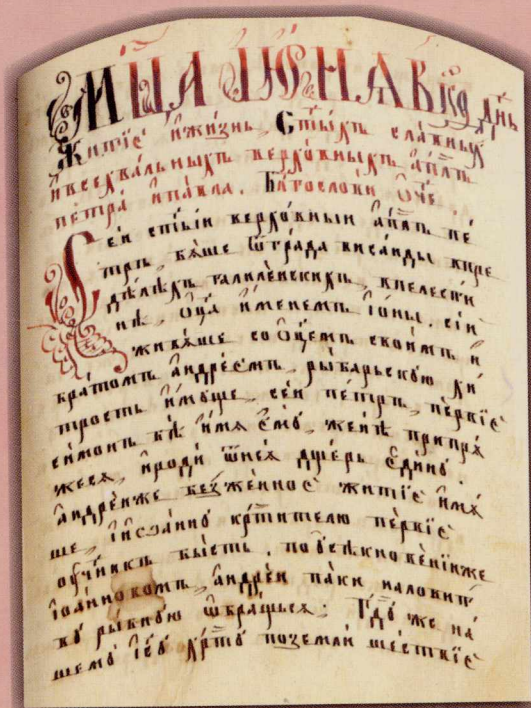 Мц҃а іюнѧ въ к҃ѳ днь
Житїе и҆жи́знь, ст҃ы́хъ сла́вныхъ
и҆всехва́льныхъ верхо́вныхъ а҆пⷭ҇лъ
петра̀ и҆па́вла. Бл҃гослови ѻ҆́ч҃е.
Се́й ст҃ы́и верхо́вныи а҆пⷭ҇лъ пе́
тръ, бѧ́ше ѿгра́да висаи́ды впре
дѣ́лѣхъ галиле́йскихъ, впелести́
нѣ, ѻц҃а̀ и҆́менемъ і҆о́ны. сїи
живѧ́ше соѻц҃е́мъ свои́мъ и҆
бра́томъ а҆ндре́емъ, рыба́рьскою хи́
трость и҆мꙋ́ще, се́й пе́тръ, пе́рвїе
си́монъ бѣ̀ и҆мѧ є҆мꙋ̀, женѣ̀ припрѧ
же́сѧ, и҆родѝ ѿнеѧ̀ дще́рь є҆ди́нꙋ.
а҆ндре́йже безже́нное житїѐ и҆мѧ́
ше, і҆оа́ннꙋ крⷭ҇ти́телю пе́рвїе
ᲂу҆чн҃и́къ бы́сть. поᲂусѣ́кнове́нїиже
і҆оа́нновомъ, а҆ндре́й па́ки налови́т
вꙋ ры́бнꙋю ѿбра́щьсѧ. Гдⷭ҇ꙋ же на́
шемꙋ̀ і҆с҃ꙋ хрⷭ҇тꙋ̀ поземлѝ ше́ствїе